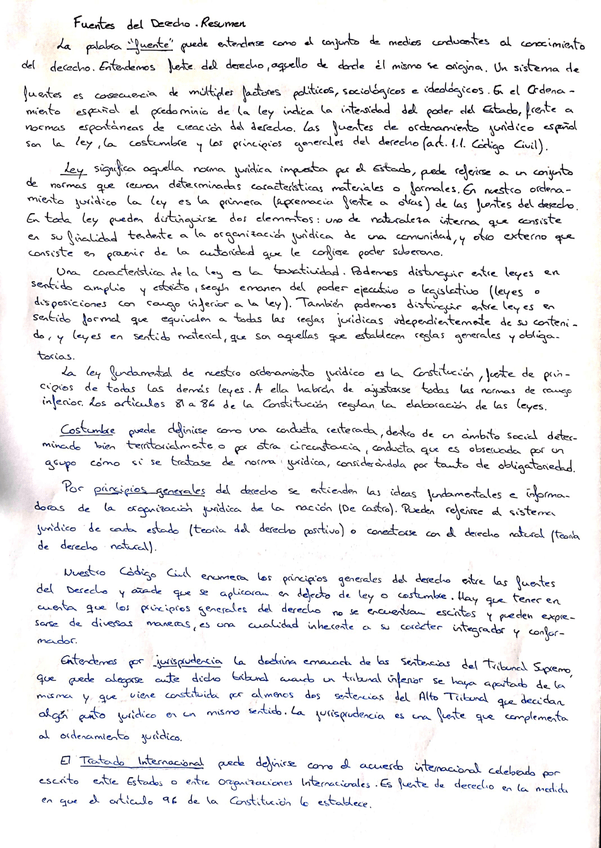 Fuentes del Derecho. Resumen
La palabra "fuente" puede entenderse como el conjunto de medios conducentes al conocimiento
del derecho. Entendemos fuente del derecho, aquello de donde él mismo se origina. Un sistema de
fuentes es consecuencia de múltiples factores políticos, sociológicos e ideológicos. En el Ordena-
miento español el predominio de la ley indica la intensidad del poder del Estado, frente a
normas espontáneas de creación del derecho. Las fuentes de ordenamiento jurídico español
son la ley, la costumbre y los principios generales del derecho (art. 1.1. Código Civil).
Ley significa aquella norma jurídica impuesta por el Estado, puede referirse a un conjunto
de normas que reunan determinadas características materiales o formales. En nuestro ordena-
miento jurídico la ley es la primera (supremacía frente a otras) de las fuentes del derecho.
En toda ley pueden distinguirse dos elementos: uno de naturaleza interna, que consiste
en su finalidad tendente a la organización jurídica de una comunidad, y otro externo que
consiste en provenir de la autoridad que le confiere poder soberano.
Una característica de la ley es la taxatividad. Podemos distinguir entre leyes en
sentido amplio y estricto, según emanen del poder ejecutivo o legislativo (leyes o
disposiciones con rango inferior a la ley). También podemos distinguir entre leyes en
sentido formal que equivalen a todas las reglas jurídicas independientemente de su conteni-
do, y leyes en sentido material, que son aquellas que establecen reglas generales y obliga-
torias.
La ley fundamental de nuestro ordenamiento jurídico es la Constitución, fuente de prin-
cipios de todas las demás leyes. A ella habrán de ajustarse todas las normas de rango
inferior. Los artículos 81 a 86 de la Constitución regulan la elaboración de las leyes.
Costumbre puede definirse como una conducta reiterada, dentro de un ámbito social deter-
minado bien territorialmente o por otra circunstancia, conducta que es observada por un
grupo cómo si se tratase de norma jurídica, considerándola por tanto de obligatoriedad.
Por principios generales del derecho se entienden las ideas fundamentales e informa-
doras de la organización jurídica de la nación (De castro). Pueden referirse al sistema
jurídico de cada estado (teoría del derecho positivo) o conectarse con el derecho natural (teoría
de derecho natural).
Nuestro Código Civil enumera los principios generales del derecho entre las fuentes
del Derecho y añade que se aplicaran en defecto de ley o costumbre. Hay que tener en
cuenta que los principios generales del derecho no se encuentran escritos y pueden expre-
sarse de diversas maneras, es una cualidad inherente a su carácter integrador y confor-
mador.
Entendemos por jurisprudencia la doctrina emanada de las Sentencias del Tribunal Supremo,
que puede alegarse ante dicho tribunal cuando un tribunal inferior se haya apartado de la
misma y que viene constituida por almenos dos sentencias del Alto Tribunal que decidan
algún punto jurídico en un mismo sentido. La jurisprudencia es una fuente que complementa
al ordenamiento jurídico.
El Tratado Internacional puede definirse como el acuerdo internacional celebrado por
escrito entre Estados o entre organizaciones Internacionales. Es fuente de derecho en la medida
en que el artículo 96 de la Constitución lo establece.